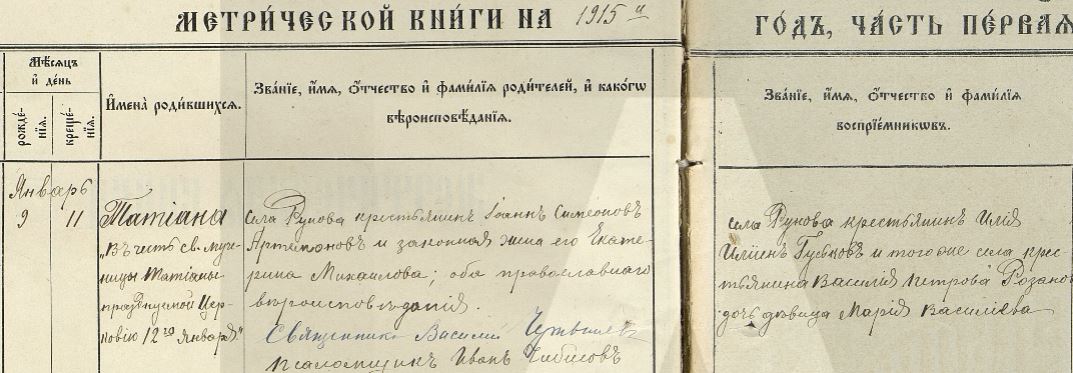 МЕТРИ́ЧЕСКОЙ КНИ́ГИ НА 1915 й ГО́ДЪ, ЧА́СТЬ ПЕ́РВАЯ
Мѣ́сяцъ и҆ де́нь
рожде́нїя.
креще́нїя.
И҆мена̀ роди́вшихся.
Зва́нїе, и҆́мя, ѻ҆́тчество и҆ фами́лїя роди́телей, и҆ како́гѡ
вѣроисповѣ́данїя.
Зва́нїе, и҆́мя, ѻ҆́тчество и҆ фами́лїя
воспрїе́мникѡвъ.
Январь
9 11
Татіана
„Въ честь св. муче-
ницы Татіаны
празднуемой Цер-
ковію 12го Января"
села Рунова крестьянинъ Іоаннъ Симеоновъ
Артемоновъ и законная жена его Екате-
рина Михаилова; оба православнаго
вѣроисповѣданія.
Священникъ Василій
Псаломщикъ Иванъ Чибисовъ
села Рунова крестьянинъ Илія
Гуськовъ и тогоже села крес-
тьянина Василія Петрова Розанов
дочь дѣвица Марія Василіева